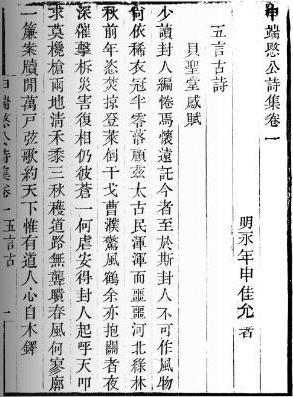 申端愍公詩集卷一
明永年申佳允 著
五言古詩
貝聖堂感賦
少讀封人編惓焉懷遠託今者至於斯封人不可作風物
何依稀衣冠半零落顧茲太古民渾渾而噩噩河北綠林
秋前年恣焚掠登萊倒干戈曹濮驚風鶴余亦抱關者夜
深催擊柝災害復相仍彼蒼一何虐安得封人起呼天叩
求莫欃槍兩地清禾黍三秋穫道路無聾聵春風何寥廓
一簾案牘閒萬戶弦歌約天下惟有道人心自木鐸
申端愍公詩集卷一 五言古 一